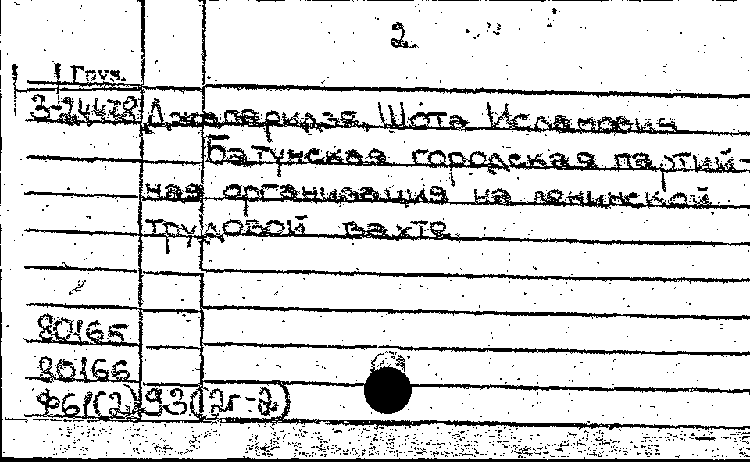 2
Груз.
3-24478 Джапаридзе, Шота Исламович
Батумская городская партий-
ная организация на ленинской
трудовой вахте
80165
80166
Ф61(2)93(2г-2)